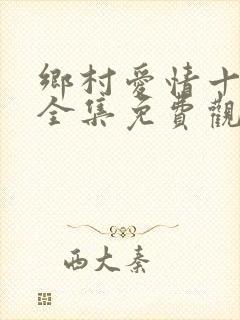 鄉村愛情十
全集免費觀
西大秦